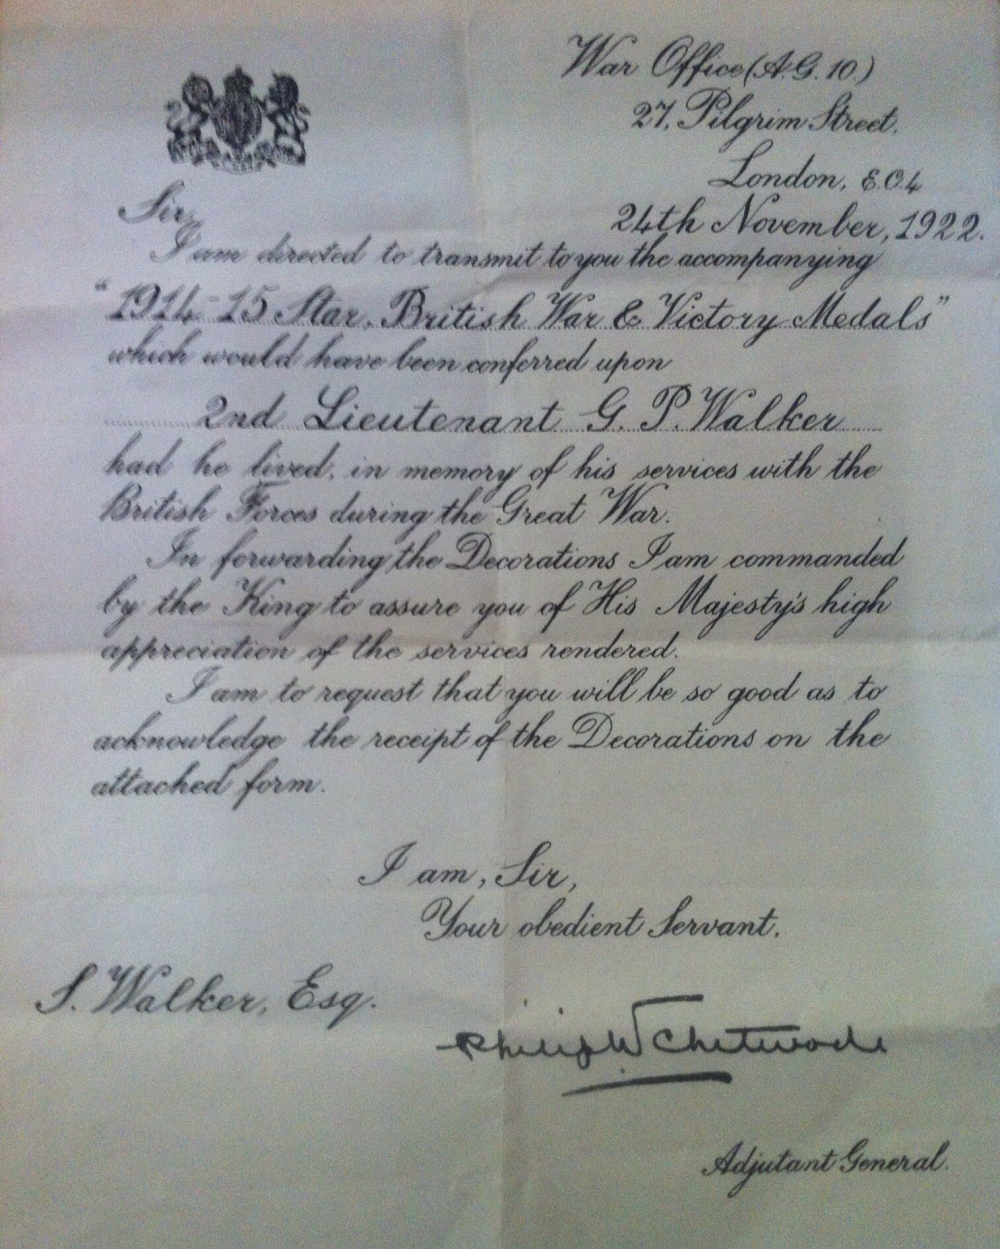 War Office (A.G. 10.)
27, Pilgrim Street,
London, E.C.4
24th November, 1922.
Sir,
I am directed to transmit to you the accompanying
"1914-15 Star, British War & Victory Medals"
which would have been conferred upon
2nd Lieutenant G. P. Walker
had he lived, in memory of his services with the
British Forces during the Great War.
In forwarding the Decorations I am commanded
by the King to assure you of His Majesty's high
appreciation of the services rendered.
I am to request that you will be so good as to
acknowledge the receipt of the Decorations on the
attached form.
I am, Sir,
Your obedient Servant,
S. Walker, Esq.
Philip W Chetwode
Adjutant General.